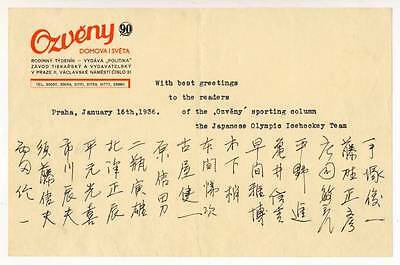 Ozvěny
90 hal.
DOMOVA I SVĚTA
RODINNÝ TÝDENÍK — VYDÁVÁ „POLITIKA"
ZÁVOD TISKAŘSKÝ A VYDAVATELSKÝ
V PRAZE II, VÁCLAVSKÉ NÁMĚSTÍ ČÍSLO 21
With best greetings
to the readers
Praha, January 16th,1936. of the „Ozvěny" sporting column
the Japanese Olympic Icehockey Team
手塚俊一
藤牲正彦
庄田敏彦
平野進
亀井信吉
早間雅博
木下梢
本間悌次
古屋健一
原信男
二瓶寅雄
北澤正辰
平元光喜
市川辰夫
須藤倍夫